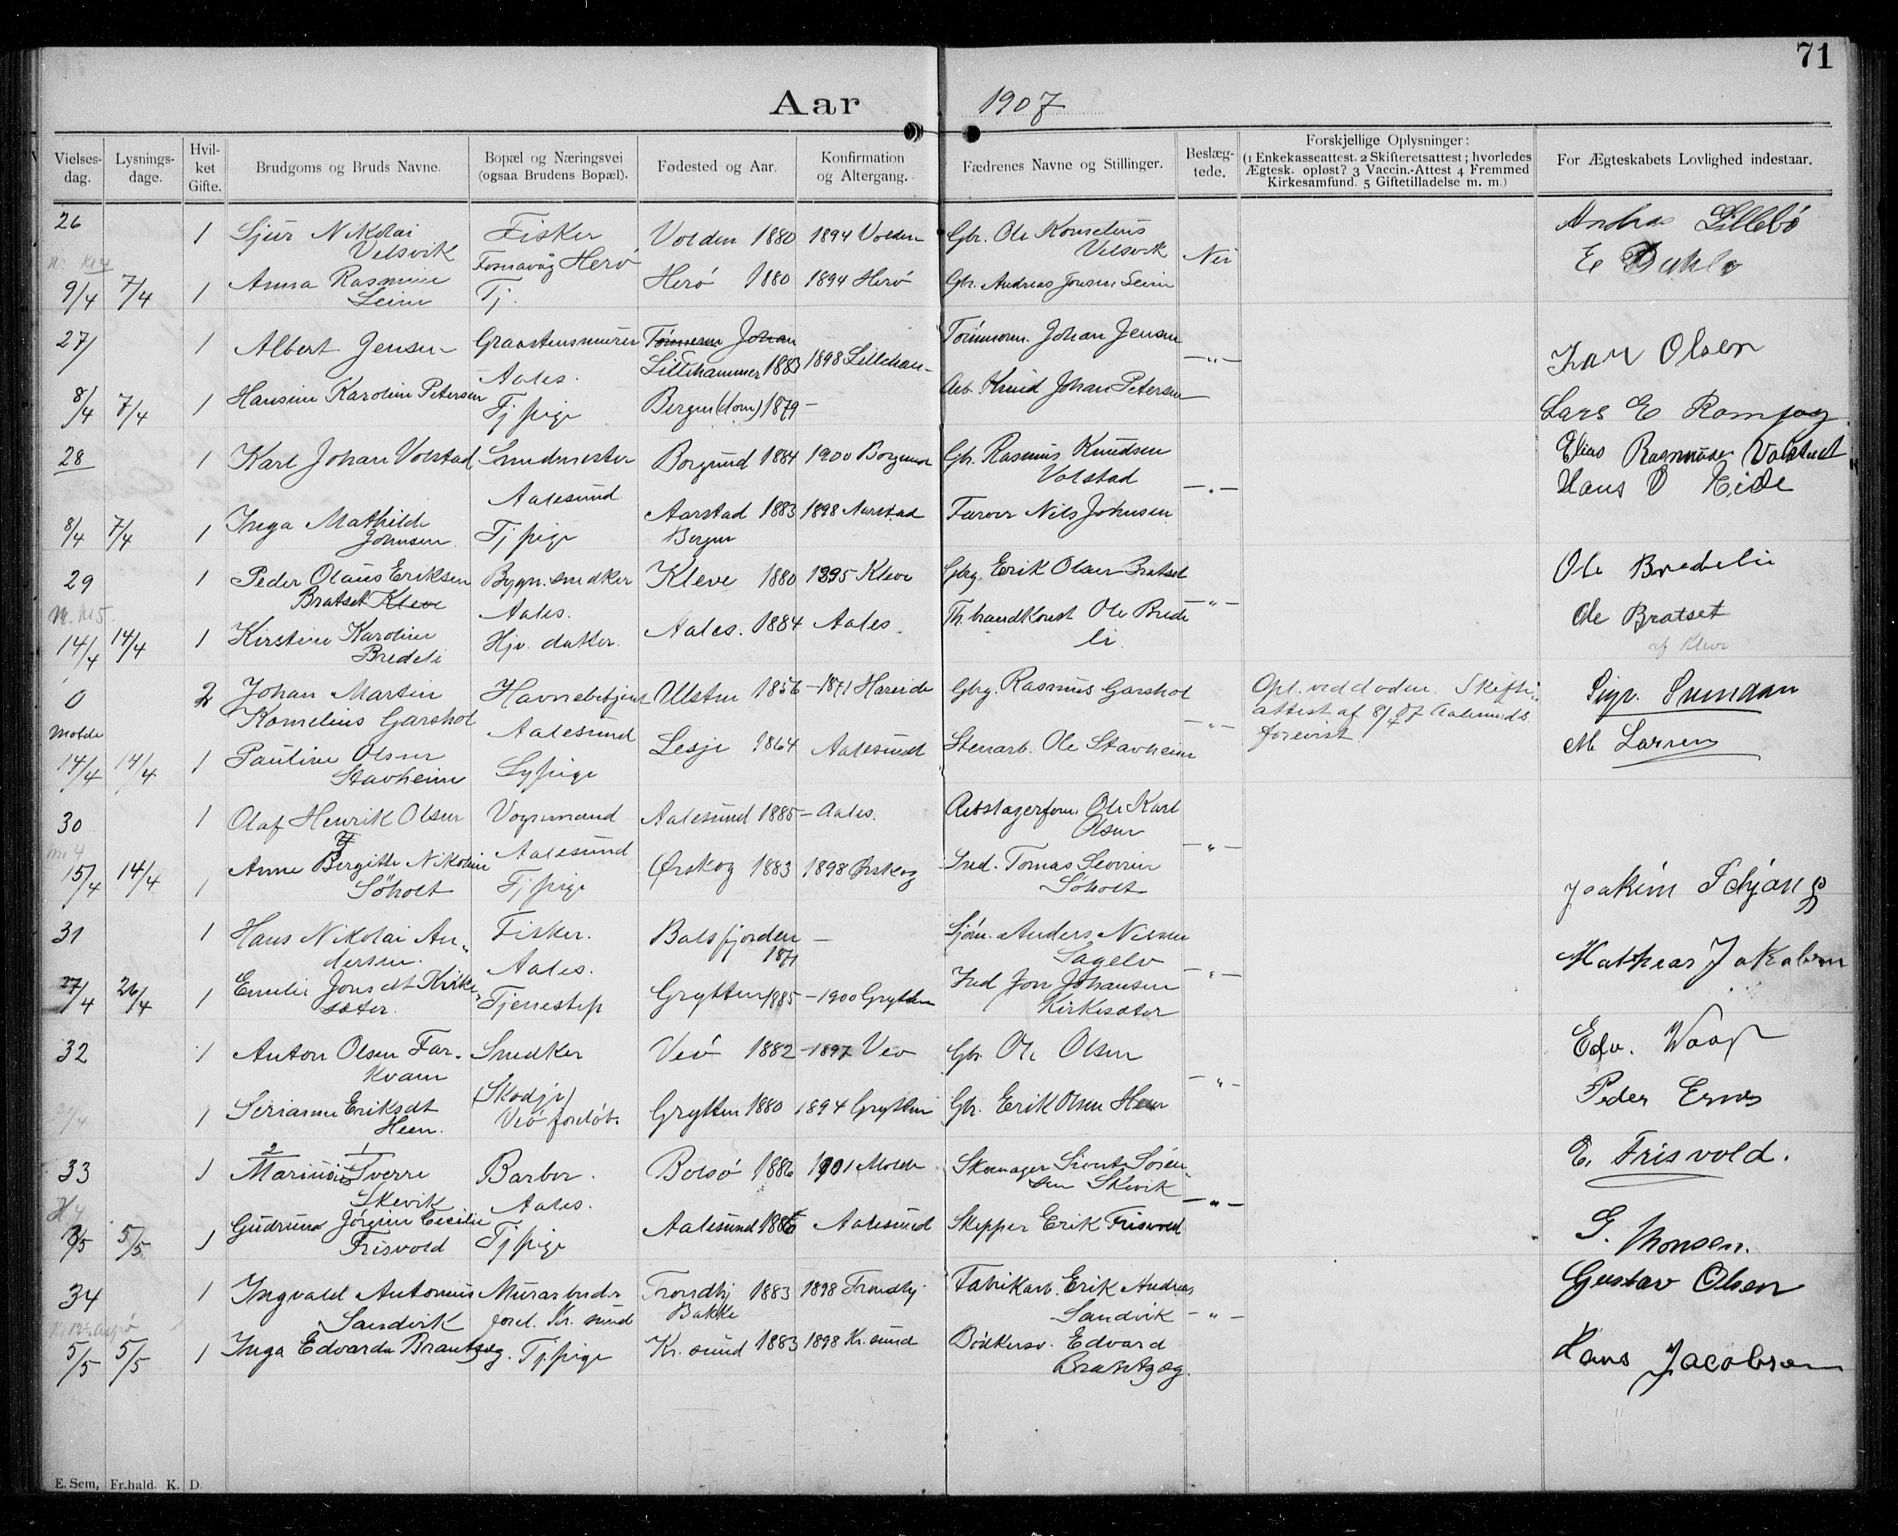 71
Aar 1907
Vielses-dag. Lysnings-dage. Hvil-ket Gifte. Brudgoms og Bruds Navne. Bopæl og Næringsvei (ogsaa Brudens Bopæl). Fødested og Aar. Konfirmation og Altergang. Fædrenes Navne og Stillinger. Beslæg-tede. Forskjellige Oplysninger: (1 Enkekasseattest. 2 Skifteretsattest; hvorledes Ægtesk. opløst? 3 Vaccin.-Attest 4 Fremmed Kirkesamfund. 5 Giftetilladelse m. m.) For Ægteskabets Lovlighed indestaar.
26 1 Sjur Nikolai Fisker Volden 1880 1894 Volden Gbr. Ole Kornelius Lillebø
Velsvik Fosnavåg Herö Velsvik Nei E
9/4 7/4 1 Anna Rasmine Tj. Herö 1880 1894 Herö Gbr. Andreas Jonsen Leine
Leine
27 1 Albert Jensen Graastensmurer Tömmerm Johan Tömmerm. Johan Jensen
Aales. Lillehammer 1883 1898 Lilleham- —"— Olsen
8/4 7/4 1 Hansine Karoline Petersen Tj pige Bergen (dom) 1879 — Arb. Knud Johan Petersen Lars E
28 1 Karl Johan Volstad Smedmester Borgund 1884 1900 Borgund Gbr. Rasmus Knudsen Elias Rasmusen Volstad
Aalesund Volstad —"— Hans O Eide
8/4 7/4 1 Inga Mathilde Tj pige Aarstad 1883 1898 Aarstad Farver Nils Johnsen
Johnsen Bergen
29 1 Peder Olaus Eriksen Bygn. snedker Kleve 1880 1895 Kleve Gbrg. Erik Olsen Bratset Ole Bredeli
Bratset Kleve Aales. —"— Ole Bratset
14/4 14/4 1 Kirstine Karoline Hjv. datter. Aales. 1884 Aales. Ole Bredeli af Kleve
Bredeli
0 2 Johan Martin Havnebetjent Ulsten 1856 -1871 Hareide Gbrg. Rasmus Garshol Opl. ved döden. Skifte-
Kornelius Garshol Aalesund —"— attest af 8/4 07 Aalesunds
Molde forevist.
14/4 14/4 1 Pauline Olsen Sypige Lesje 1864 Aalesund Stenarb. Ole Stavheim M. Larsen
Stavheim
30 1 Olaf Henrik Olsen Vognmand Aalesund 1885 - Aales. Ole Karl
Aalesund Olsen —"—
15/4 14/4 1 Anne Bergitte Nikoline Tj pige Ørskog 1883 1898 Ørskog Sned. Tomas Severin Joakim
Söholt Söholt
31 1 Hans Nikolai An- Fisker. Balsfjorden — Sjöm. Anders Nilsen
dersen. Aales. 1871 Sagelv —"— Mathias Jakobsen
27/4 26/4 1 Emilie Jonsdt Kirke- Tjenestep Grytten 1885 -1900 Grytten Jon Johansen
sæter. Kirkesæter
32 1 Anton Olsen Far- Snedker Veö 1882 -1897 Veö Gbr. Ole Olsen Edv.
kvam (Skodje) —"—
1 Serianne Eriksdt Veö foreløb. Grytten 1880 1894 Grytten Gbr. Erik Olsen Heen Peder
Heen.
33 1 Marinus Sverre Barber. Bolsö 1886 1901 Molde. Skomager Sivert Sören- E. Frisvold.
Skevik Aales. sen Skevik —"—
5/5 5/5 1 Gudrund Jörgine Cecilie Tj pige Aalesund 1886 Aalesund Skipper Erik Frisvold G. Monsen.
Frisvold
34 1 Ingvald Antonius Murarbeider Trondhj 1883 1898 Trondhj Fabrikarb. Erik Andreas Gustav Olsen
Sandvik forel. Kr. sund Bakke Sandvik —"—
5/5 5/5 1 Inga Edvarda Brantzæg. Tj. pige Kr. sund 1883 1898 Kr. sund Bödkersv. Edvard Hans Jacobsen
Brantzæg.
E. Sem, Fr.hald. K. D.